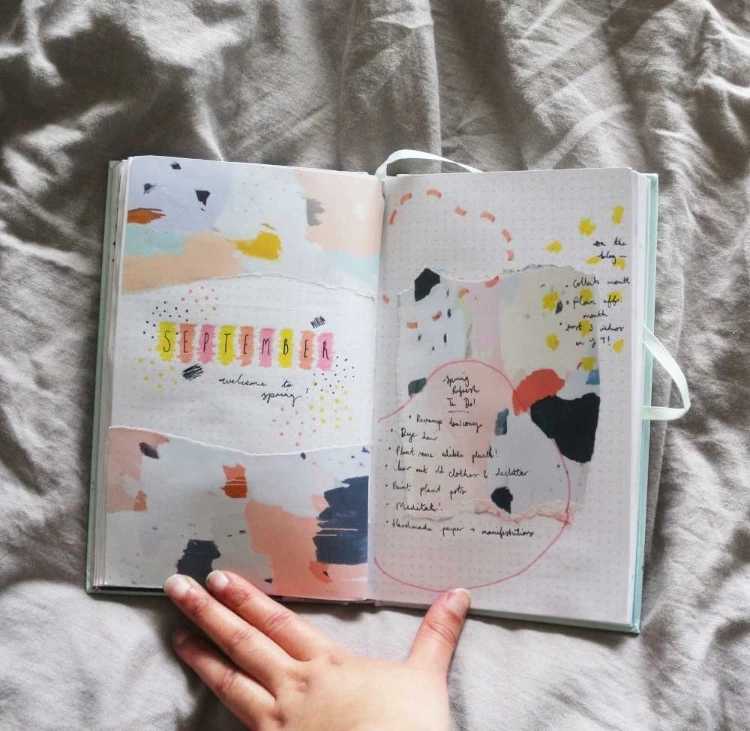 SEPTEMBER
welcome to
spring!
on the
blog —
• Collab month
• Plan
month
• Post 3 videos
on YT!
Spring
Refresh
To Do!
• Revamp balcony
• Dye hair
• Plant more edible plants!
• Clear out old clothes & declutter
• Paint plant pots
• Meditate!
• Handmade paper + manifestations